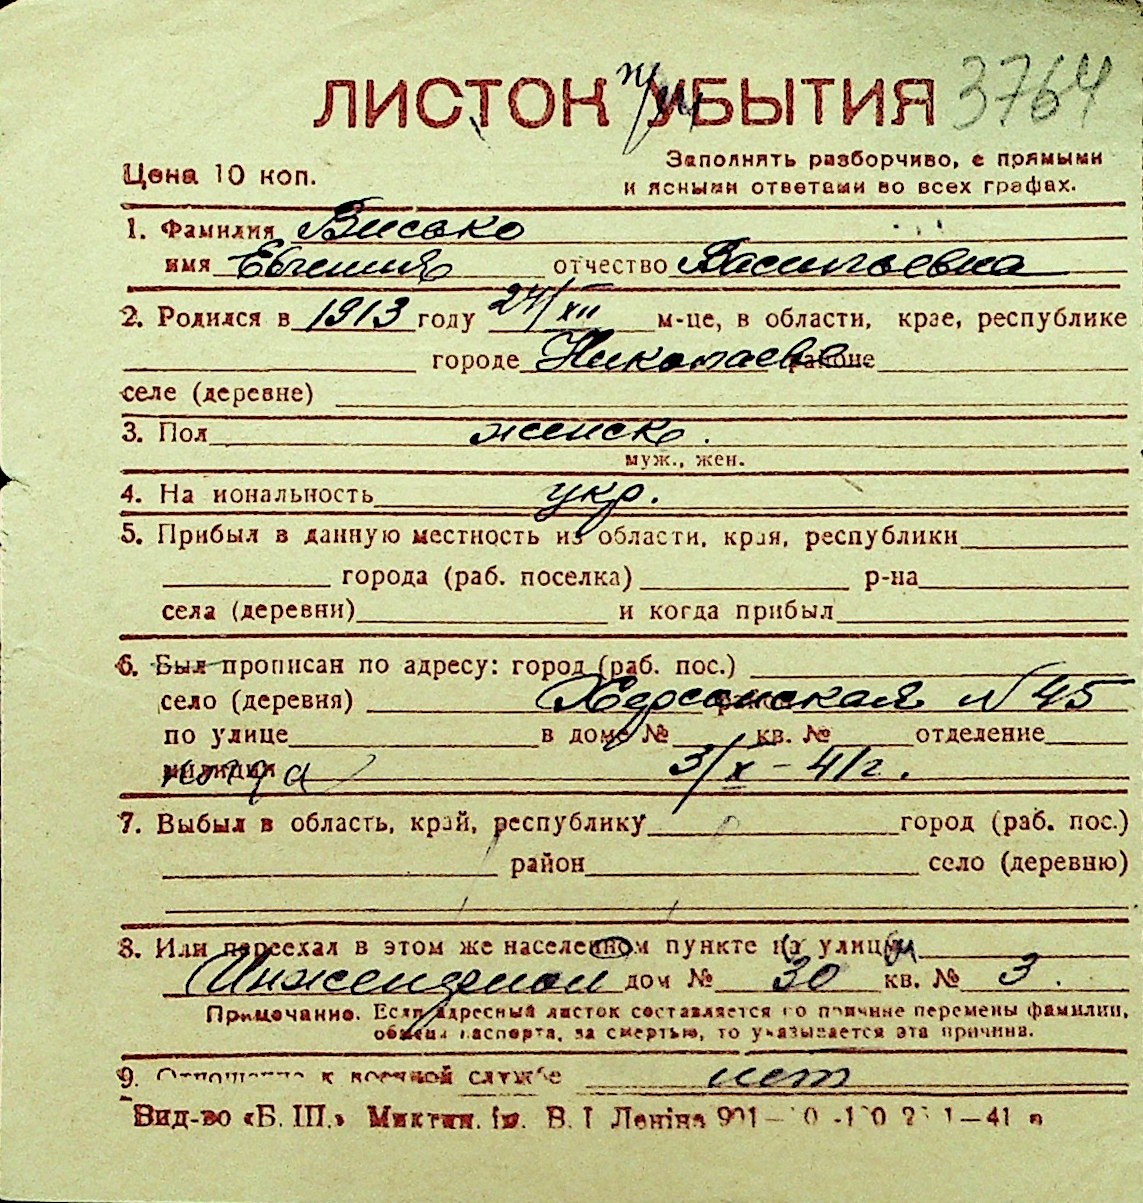 ЛИСТОК УБЫТИЯ 3764
Цена 10 коп.
Заполнять разборчиво, с прямыми
и ясными ответами во всех графах.
1. Фамилия Висько
имя Евгения отчество Васильевна
2. Родился в 1913 году 24/XII м-це, в области, крае, республике
городе Николаеве районе
селе (деревне)
3. Пол женск.
муж., жен.
4. На иональность укр.
5. Прибыл в данную местность из области, края, республики
города (раб. поселка) р-на
села (деревни) и когда прибыл
6. Был прописан по адресу: город (раб. пос.)
село (деревня) Херсонская N 45
по улице в доме № кв. № отделение
милиции когда 3/X - 41 г.
7. Выбыл в область, край, республику город (раб. пос.)
район село (деревню)
8. Или переехал в этом же населенном пункте на улицу
дом № 30 кв. № 3.
Примечание. Если адресный листок составляется по причине перемены фамилии,
обмена паспорта, за смертью, то указывается эта причина.
9. Отношение к военной службе нет
Вид-во «Б. Ш.» Миктип. ім. В. І Леніна